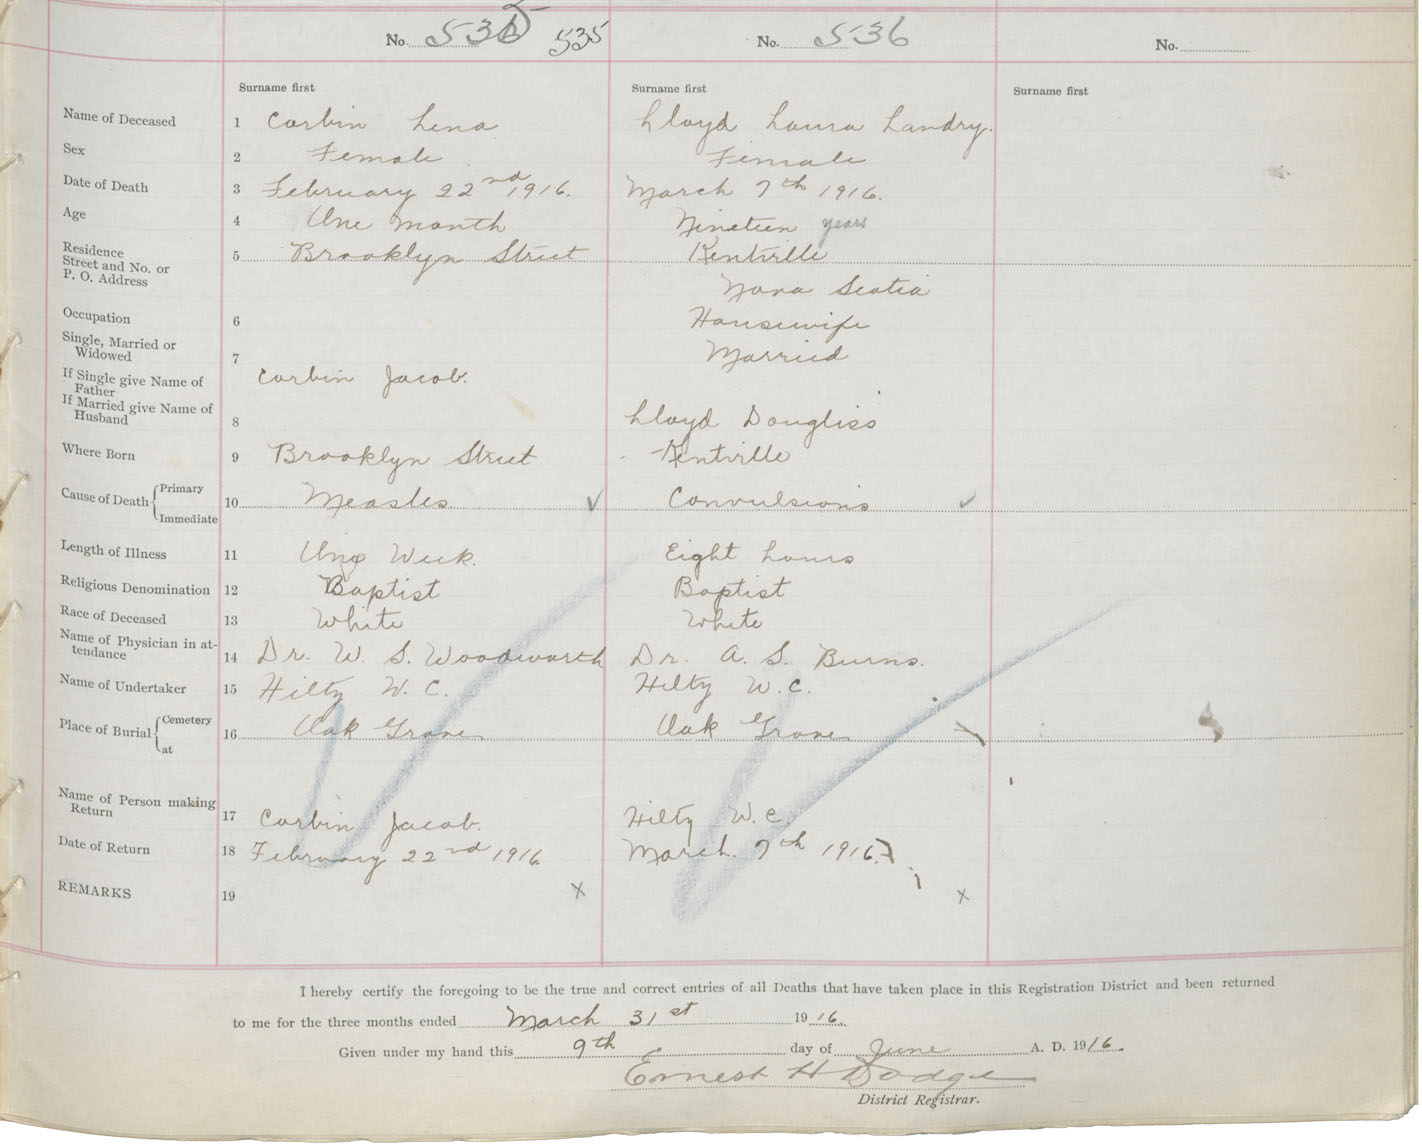 No. 535 535 No. 536 No.
Surname first Surname first Surname first
Name of Deceased 1 Corbin Lena Lloyd Laura Landry.
Sex 2 Female Female
Date of Death 3 February 22nd 1916. March 7th 1916.
Age 4 One Month Nineteen years
Residence
Street and No. or
P. O. Address 5 Brooklyn Street Kentville
Nova Scotia
Occupation 6 Housewife
Single, Married or
Widowed 7 Married
If Single give Name of
Father Corbin Jacob.
If Married give Name of
Husband 8 Lloyd Dougliss
Where Born 9 Brooklyn Street Kentville
Cause of Death Primary
10 Measles. Convulsions
Immediate
Length of Illness 11 One Week. Eight hours
Religious Denomination 12 Baptist Baptist
Race of Deceased 13 White White
Name of Physician in at-
tendance 14 Dr. W. S. Woodworth Dr. A. S. Burns.
Name of Undertaker 15 Hilty W. C. Hilty W. C.
Place of Burial Cemetery
16 Oak Grove Oak Grove
at
Name of Person making
Return 17 Corbin Jacob. Hilty W. C.
Date of Return 18 February 22nd 1916 March. 7th 1916.
REMARKS 19 x x
I hereby certify the foregoing to be the true and correct entries of all Deaths that have taken place in this Registration District and been returned
to me for the three months ended March 31st 1916.
Given under my hand this 9th day of June A. D. 1916.
Ernest H Dodge
District Registrar.